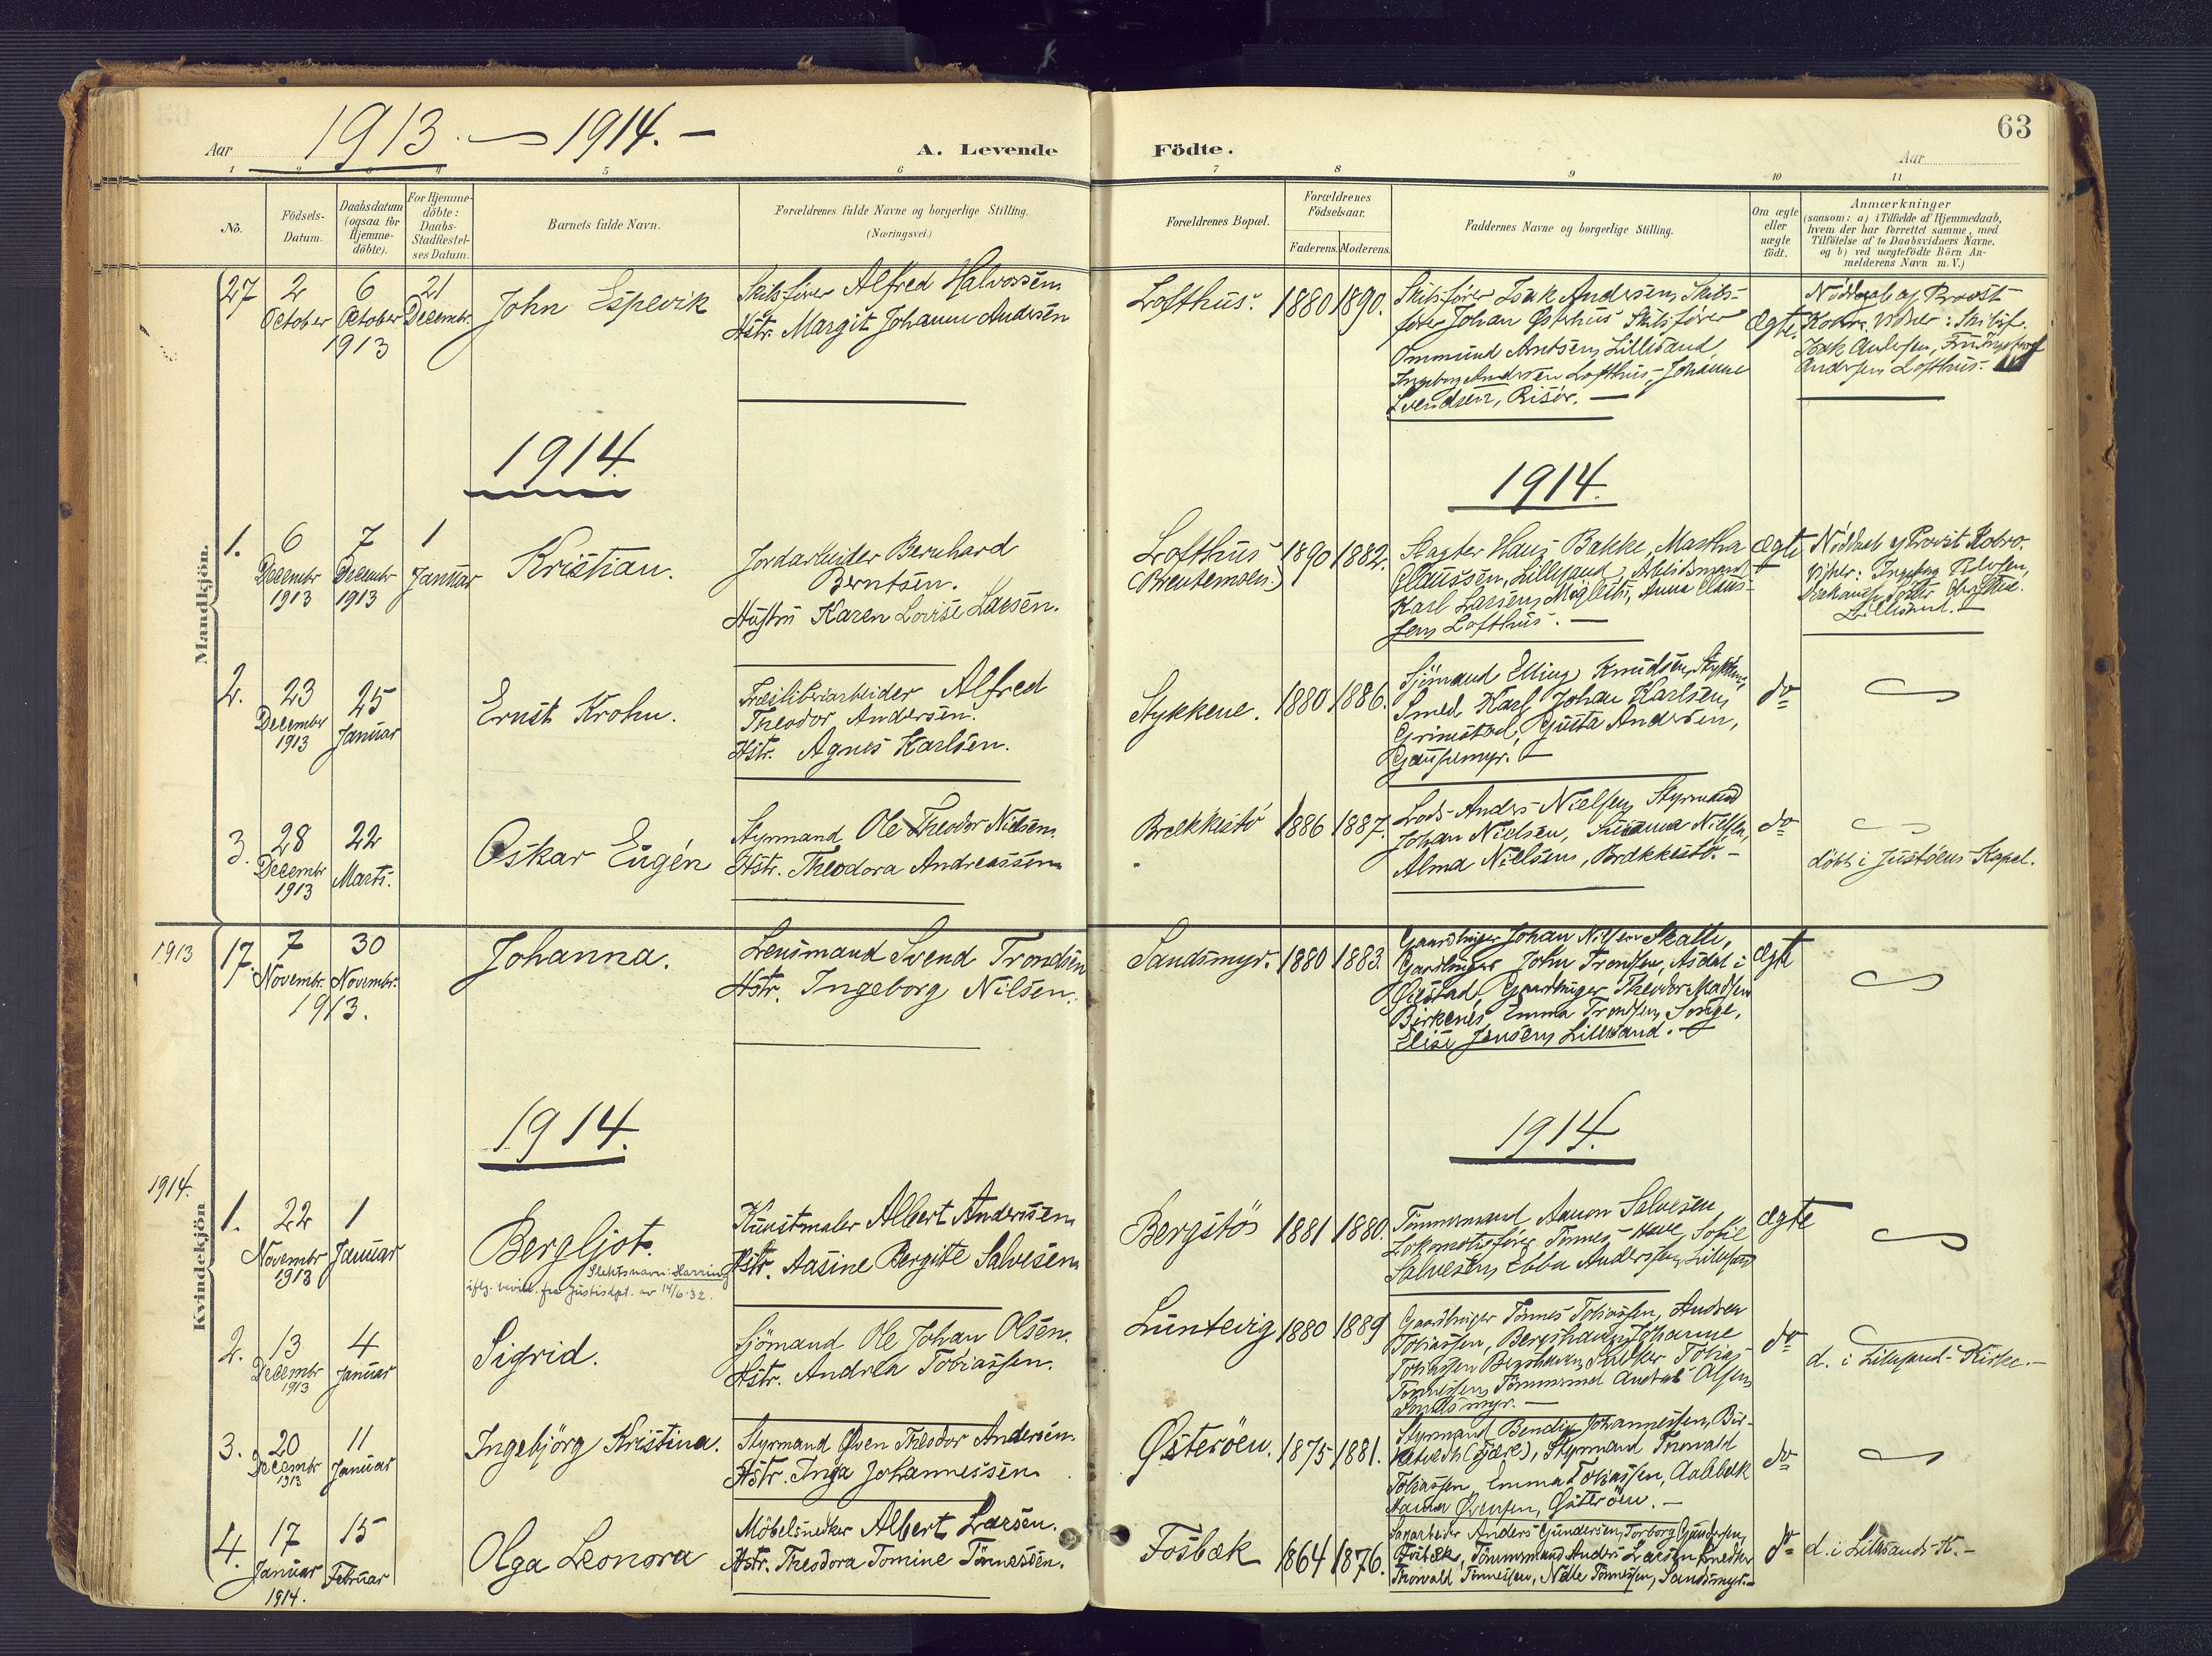 Aar 1913. — 1914. —
A. Levende Födte.
Aar
63
1 2 3 4 5 6 7 8 9 10 11
No.
Födsels-Datum.
Daabsdatum (ogsaa for Hjemme-döbte).
For Hjemme-döbte: Daabs-Stadfæstel-ses Datum.
Barnets fulde Navn.
Forældrenes fulde Navne og borgerlige Stilling.
(Næringsvei.)
Forældrenes Bopæl.
Forældrenes Födselsaar.
Faderens. Moderens.
Faddernes Navne og borgerlige Stilling.
Om ægte eller uægte födt.
Anmærkninger
(saasom: a) i Tilfælde af Hjemmedaab, hvem der har forrettet samme, med Tilföielse af to Daabsvidners Navne, og b) ved uægtefödte Börn Anmelderens Navn m. V.)
Mandkjön.
27 2 October 6 October 1913 21 Decembr.
John Espevik
Skibsförer Alfred Halvorsen
Hstr. Margit Johanne Andersen
Lofthus. 1880 1890.
Skibsförer Isak Andersen, Skibs-
förer Johan Østerhus Skibsförer
Ommund Arntsen, Lillesand,
Ingeborg Andersen Lofthus, Johanne
Svendsen, Risör. —
Ægte.
Nöddaab af Provst
Kobro. Vidner: Skibsf.
Isak Andersen, Fru Ingeborg
Andersen Lofthus.
1914.
1914.
1. 6 Decembr 1913 7 Decembr 1913 1 Januar
Kristian.
Jordarbeider Bernhard
Berntsen.
Hustru Karen Lovise Larsen.
Lofthus 1890 1882.
Slagter Hans Bakke, Martha
Claussen, Lillesand, Arbeidsmand
Karl Larsen, Anna Claus-
sen, Lofthus. —
Ægte
Nöddaab af Provst Kobro.
Vidner: Ingeborg
Lillesand. —
2. 23 Decembr 1913 25 Januar
Ernst Krohn.
Alfred
Theodor Andersen.
Hstr. Agnes Karlsen.
Stykkene. 1880 1886.
Sjömand Elling Knudsen, Stykkene,
Smed Karl Johan Karlsen,
Grimstad, Gusta Andersen,
do
3. 28 Decembr 1913 22 Marts.
Oskar Eugén
Styrmand Ole Theodor Nielsen.
Hstr. Theodora Andreassen
Brækkestö 1886 1887.
Lods Anders Nielsen, Styrmand
Johan Nielsen, Susanna Nielsen,
Alma Nielsen, Brækkestö. —
do
döbt i Justöens Kapel.
1913
17. 7 Novembr. 30 Novembr. 1913.
Johanna.
Lensmand Svend Trondsen
Hstr. Ingeborg Nilsen.
Sandsmyr. 1880 1883.
Gaardbruger Johan Nilsen Skatte,
Gardbruger John Trondsen, Asdal i
Øiestad, Gaardbruger Theodor Madsen
Birkenes, Emma Trondsen,
Elise Jensen, Lillesand. —
Ægte
1914.
1914.
1914.
Kvindekjön
1. 22 Novembr 1913 1 Januar
Bergljot.
Slektsnavn: Harring
iflg. bevill. fra Justisdpt. av 14/6-32.
Kunstmaler Albert Andersen
Hstr. Aasine Bergitte Salvesen
Bergstö 1881 1880.
Tömmermand Aanon Salvesen
Lokomotivförer Tönnes Have, Sofie
Salvesen, Ebba Andersen, Lillesand
Ægte
2. 13 Decembr 1913 4 Januar
Sigrid.
Sjömand Ole Johan Olsen.
Hstr. Andrea Tobiassen.
Luntevig 1880 1889
Gaardbruger Tönnes Tobiassen, Andrea
Tobiassen, Bergshaven, Johanne
Tobiassen Bergshaven, Tobias
Tönnessen, Tömmermand Olsen,
Sandsmyr. —
do
d. i Lillesands Kirke. —
3. 20 Decembr 1913 11 Januar
Ingebjörg Kristina.
Styrmand Øven Theodor Andersen.
Hstr. Inga Johannessen.
Østeröen. 1875 1881.
Styrmand Bendix Johannessen,
Styrmand Thorvald
Tobiassen, Emma Tobiassen,
Østeröen. —
do
4. 17 Januar 1914. 15 Februar
Olga Leonora
Möbelsnedker Albert Larsen.
Hstr. Theodora Tomine Tönnessen.
Fosbæk 1864 1876.
Anders Gundersen, Torborg Gundersen,
Fosbæk, Tömmermand Anders Larsen, Snedker
Thorvald Tönnessen, Tönnessen, Sandsmyr. —
do
d. i Lillesands K. —